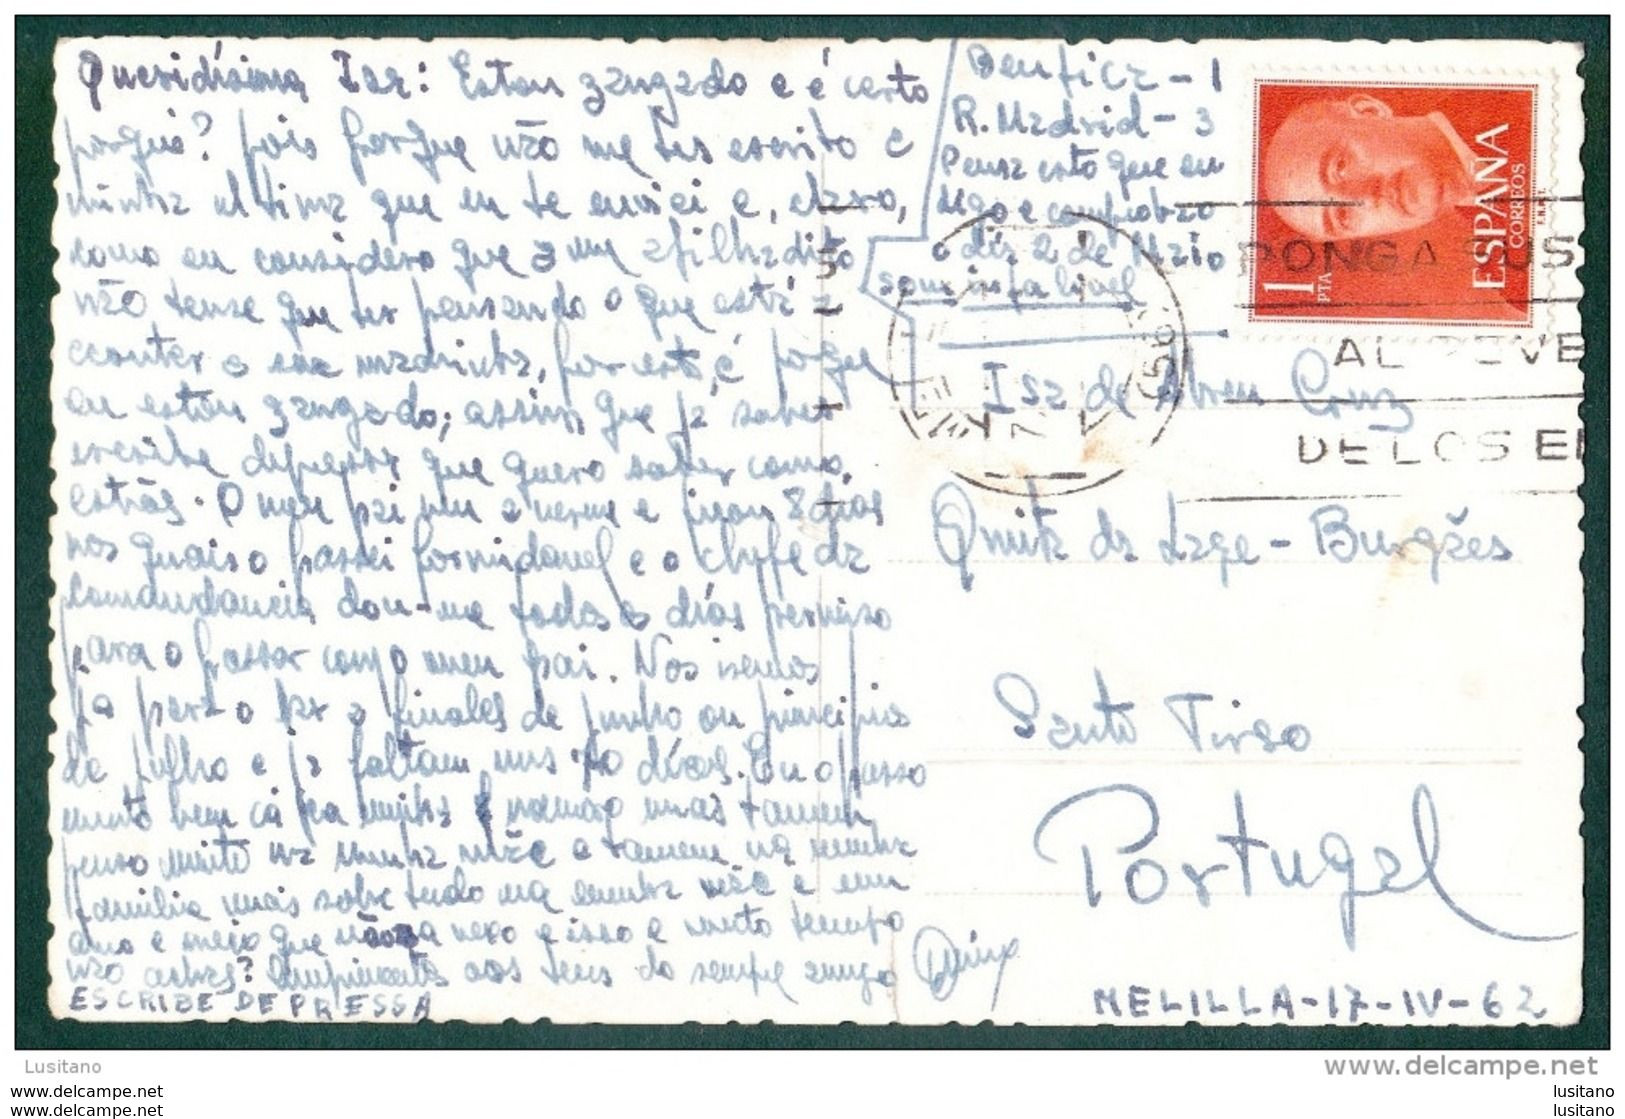 Queridisima Isa: Estou zangado e é certo
porquê? pois porque não me tes escrito e
minha ultima que eu te enviei e, claro,
como eu considero que a um afilhadito
não tense que ter pensando o que está a
a sua madrinha, por esto, é porque
eu estou zangado; assim que já sabes
escribe depressa que quero saber como
estás. O meu pai veu a verme e ficou 8 dias
nos quais o passei formidavel e o cheffe da
Comandancia dou-me todos os dias permiso
para o passar como o meu pai. Nos iremos
ja para o par a finales de junho ou principios
de julho e ja faltam uns 70 dias. Eu o passo
muito bem cá na minha mas tamem
penso muito na minha mãe e tamem na minha
familia mas sobre tudo na minha mãe e um
ano e meio que não a vexo e isso e muito tempo
não achas? Cumprimentos aos teus do sempre amigo
ESCRIBE DEPRESSA
Benfica - 1
R. Madrid - 3
Pensa esto que eu
digo e comprobao
o día 2 de Maio
som infaliavel
ESPAÑA
CORREOS
F.N.M.T.
1 PTA
PONGA SUS
AL
DE LOS
Isa de Abreu Cruz
Quinta da Lage - Burgães
Santo Tirso
Portugal
MELILLA-17-IV-62
Lusitano
lusitano
lusitano
delcampe.net
lusitano
lusitano